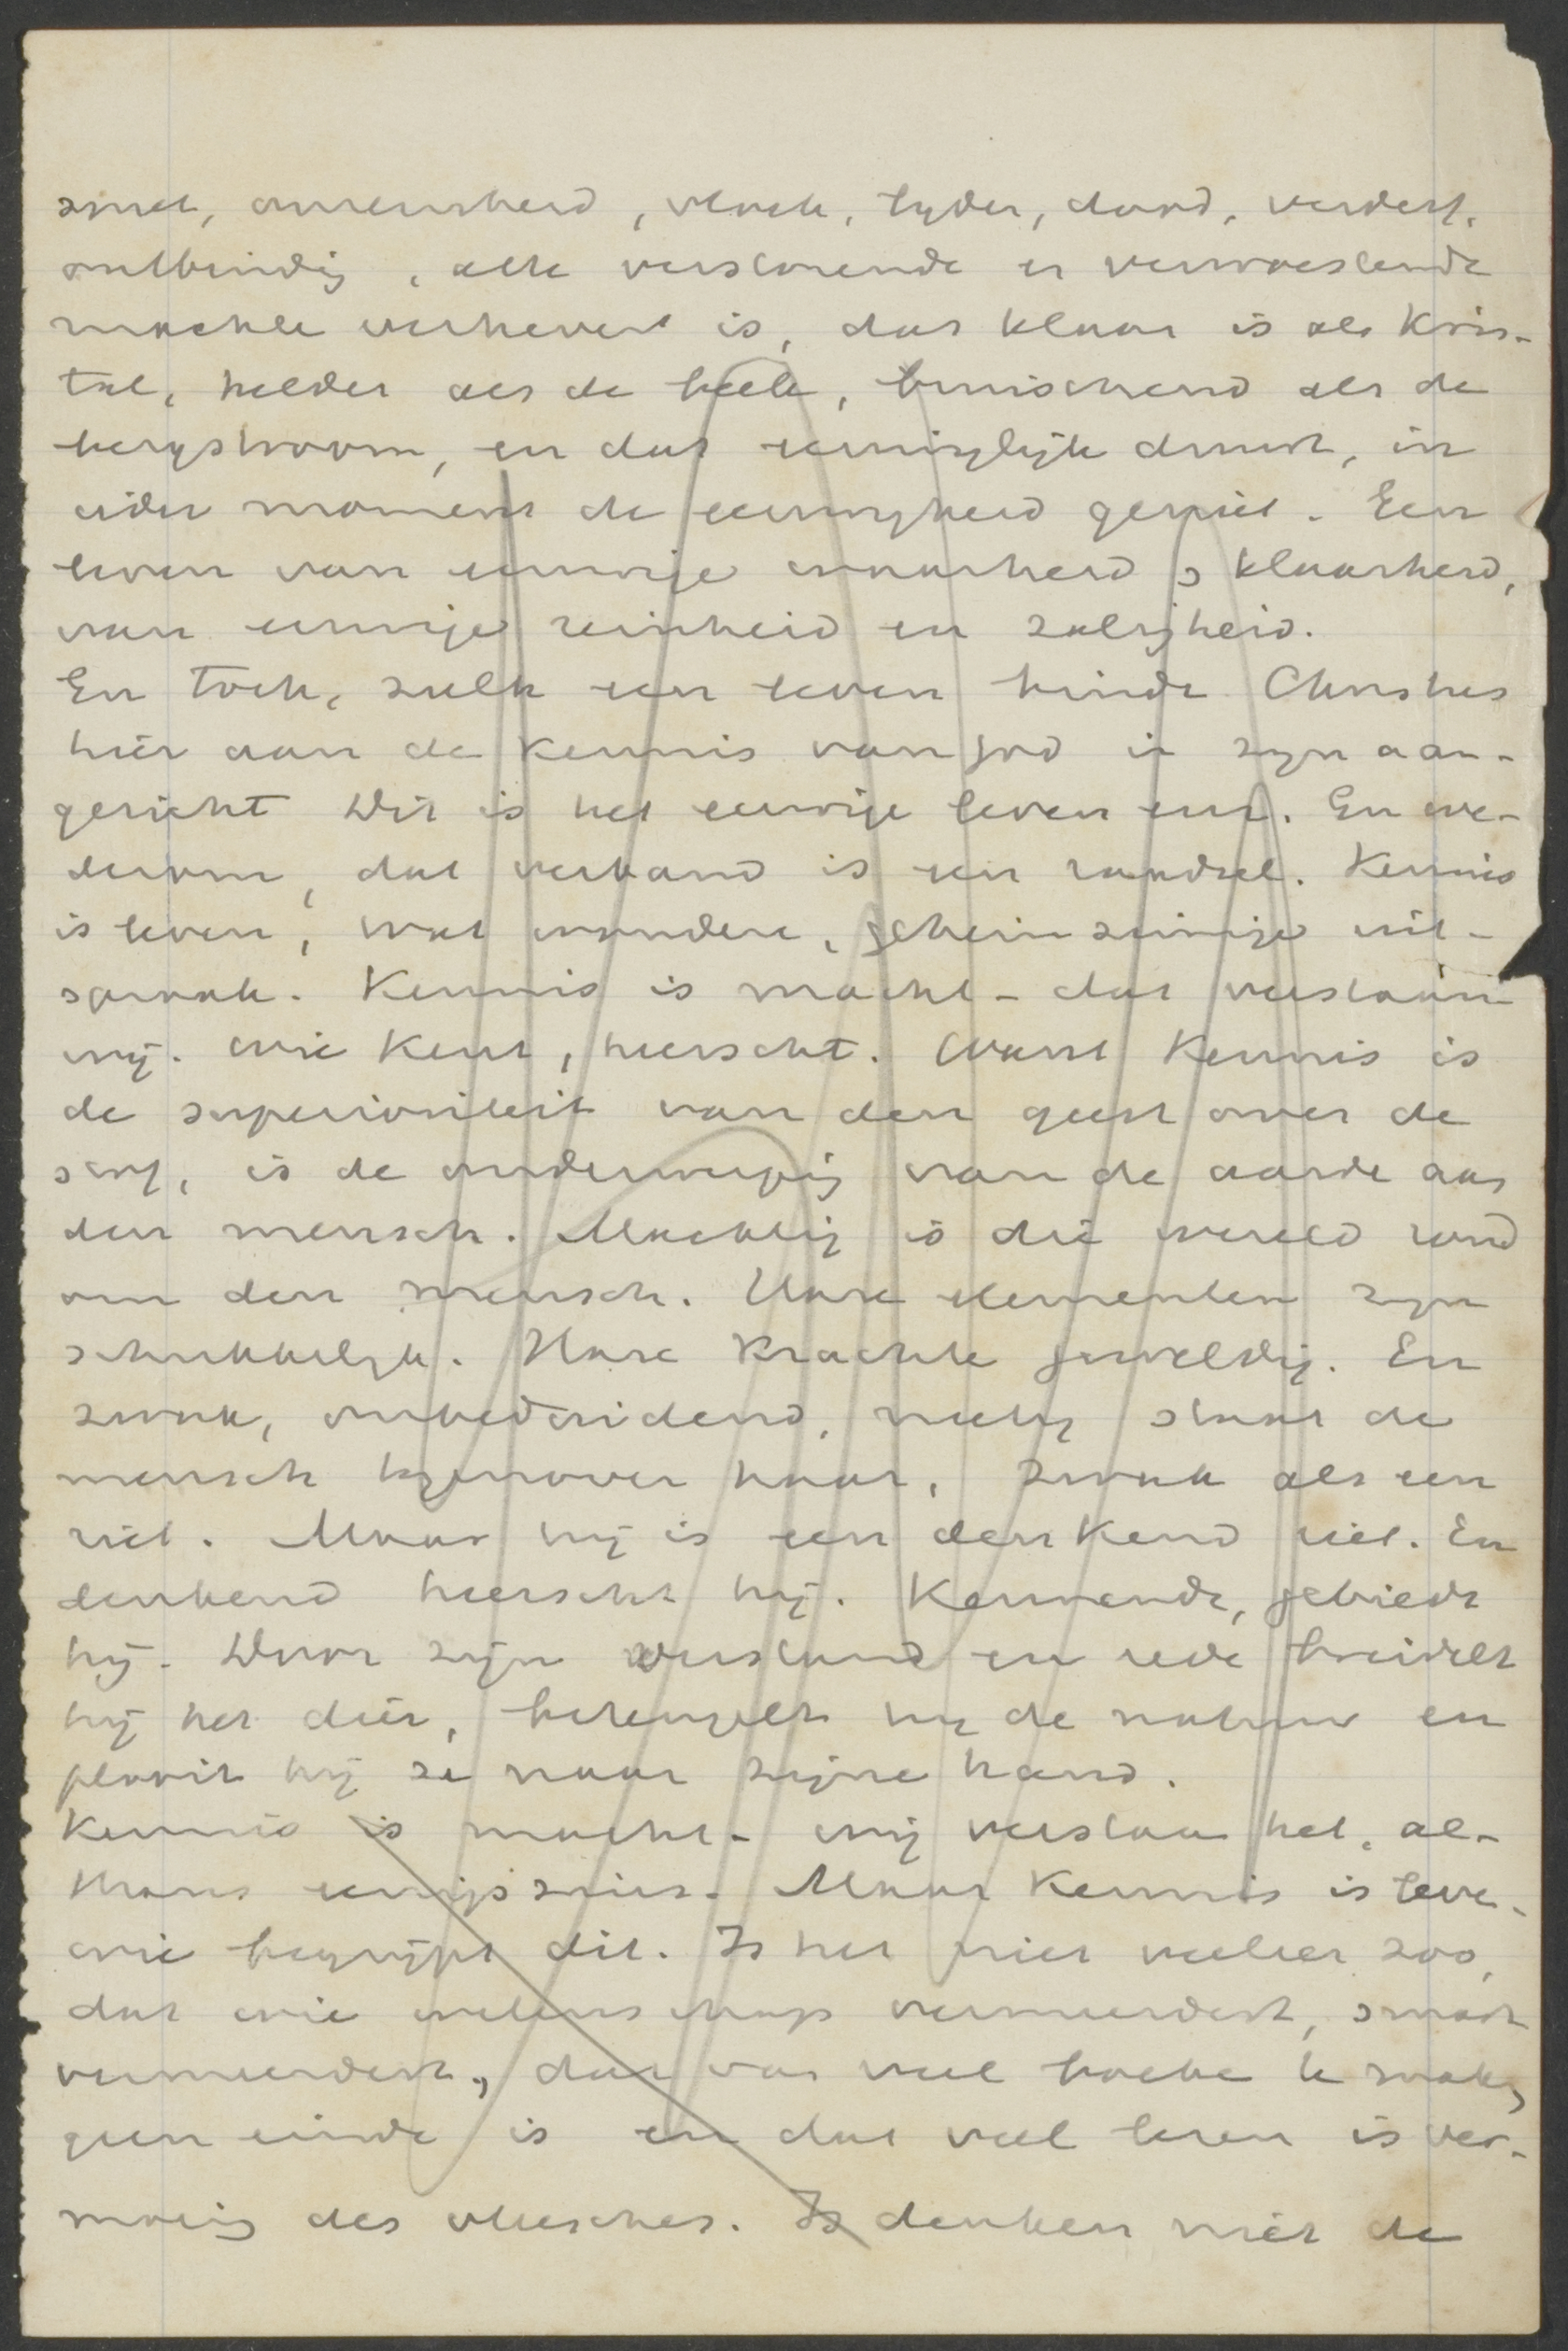 smet, onreinheid, vloek, lyden, dood, verderf,
ontbinding, alle verstorende en verwoestende
machten verheven is, dat klaar is als kris-
tal, helder als de beek, bruischend als de
bergstroom, en dat eeuwiglijk duurt, in
ieder moment de eeuwigheid geniet. Een
leven van eeuwige waarheid & klaarheid,
van eeuwige reinheid en zaligheid.
En toch, zulk een leven bindt Christus
hier aan de kennis van God in zyn aan-
gezicht Dit is het eeuwige leven enz. En we-
derom, dat verband is een raadsel. Kennis
is leven, wat wondere, geheimzinnige uit-
spraak. Kennis is macht - dat verstaan
wij. Wie kent, heerscht. Want kennis is
de superioriteit van den geest over de
stof, is de onderwerping van de aarde aan
den mensch. Machtig is die wereld rond
om den mensch. Hare elementen zyn
schrikkelyk. Hare krachten geweldig. En
zwak, onbeduidend, nietig staat de
mensch tegenover haar, zwak als een
riet. Maar hij is een denkend riet. En
denkend heerscht hij. Kennende, gebiedt
hij. Door zijn verstand en rede breidelt
hij het dier, beteugelt hij de natuur en
plooit hij ze naar zijne hand.
Kennis is macht - wij verstaan het, al-
thans eenigszins. Maar kennis is leven -
wie begrijpt dit. Is het niet veeleer zoo,
dat wie wetenschap vermeerdert, smart
vermeerdert, dat van veel boeken te maken
geen einde is en dat veel lezen is ver-
moeiing des vleesches. Is denken niet de